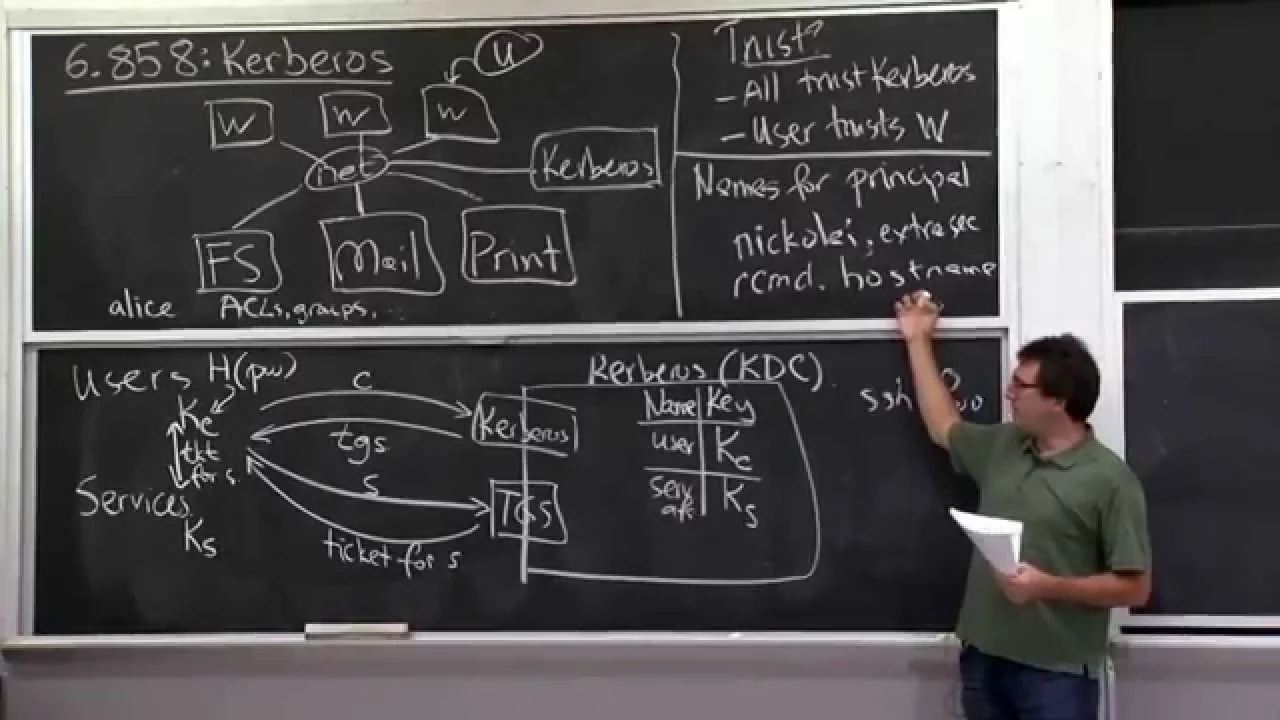 6.858: Kerberos
u
W
W
W
net
Kerberos
FS
Mail
Print
alice ACLs, groups, ..
Trust?
- All trust Kerberos
- User trusts W
Names for principal
nickolai, extrasec
rcmd. hostname
Users H(pw)
Kc
tkt
for s
Services
Ks
c
tgs
s
ticket for s
Kerberos
TGS
Kerberos (KDC)
Name Key
user Kc
serv Ks
afs
ssh